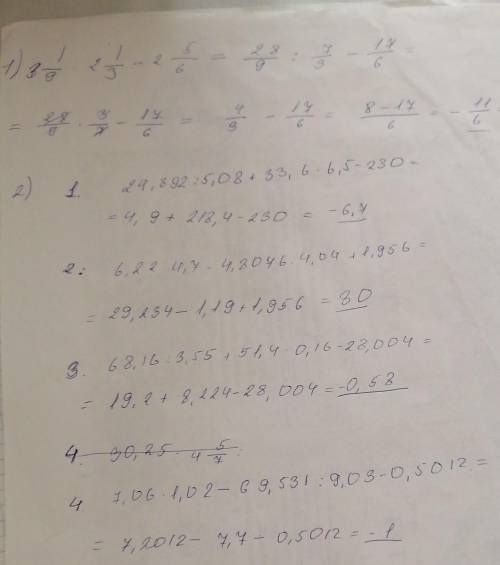 1) 3 1/9 2 1/3 - 2 5/6 = 28/9 : 7/3 - 17/6 =
= 28/9 · 3/7 - 17/6 = 4/3 - 17/6 = 8-17/6 = - 11/6
2) 1. 24,892:5,08 + 33,6·6,5-230=
= 4,9 + 218,4-230 = -6,7
2: 6,22 4,7 - 4,8076·4,04 +1,956 =
= 29,234-1,19+1,956 = 30
3. 68,16:3,55 + 51,4·0,16-28,004=
= 19,2 + 8,224-28,004=-0,58
4. 30,25 · 4 5/7:
4 7,06·1,02-69,531:9,03-0,5012=
= 7,2012- 7,7- 0,5012= -1